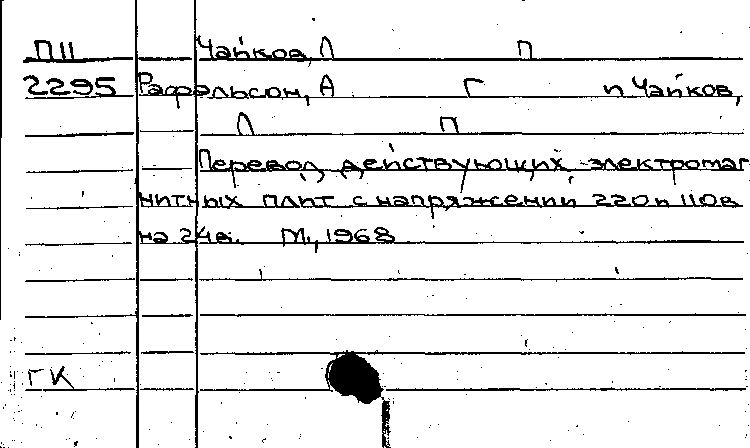 П11 Чайков, Л П
2295 Рафальсон, А Г и Чайков,
Л П
Перевод действующих электромаг
нитных плит с напряжений 220 и 110в
на 24в. М., 1968
ГК